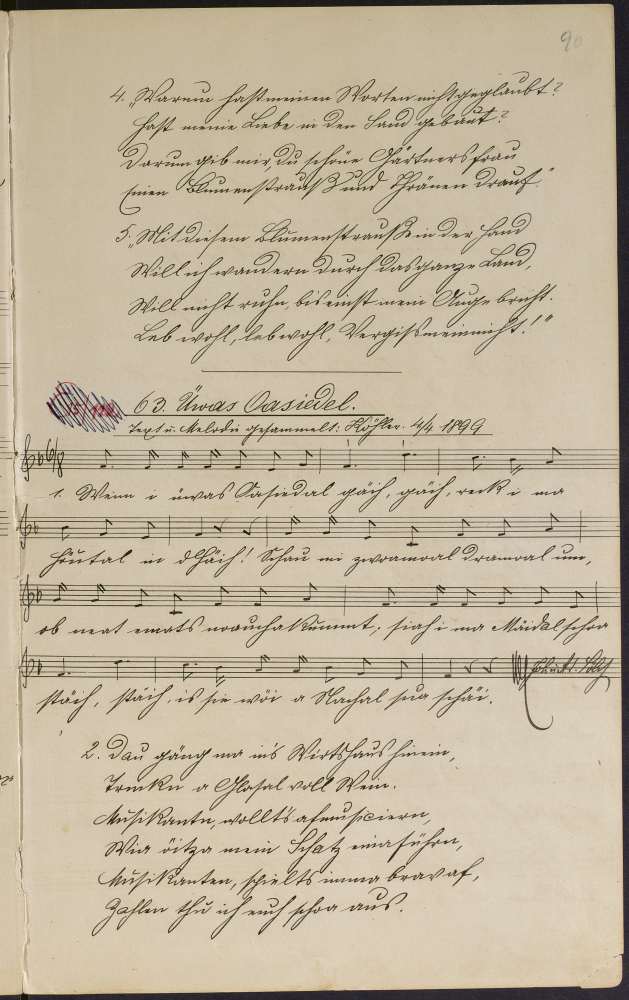 90
4. „Warum hast meinen Worten nicht geglaubt?
Hast meine Liebe in den Sand gebaut?
Darum gib mir, du schöne Gärtnersfrau
Einen Blumenstrauß und Thränen drauf.“
5. „Mit diesem Blumenstrauß in der Hand
Will ich wandern durch das ganze Land,
Will nicht ruhn, bis einst mein Auge bricht.
Leb wohl, leb wohl, Vergissmeinnicht!“
63. Üwas Oasiedel.
Text u. Melodie gesammelt: Köhler. 4/4 1899
1. Wenn i üwas Oasiedal gäih, gäih, reck i ma
Höutal in d'Häih! Schau mi zwoamoal dramoal um,
ob neat ema​ts noauchakummt, siah i ma Mäidal schoa
stäih, stäih, is sie wöi a Nachal sua schäi.
2. Dau gäng ma in's Wirtshaus hinein,
Trinkn a Glasal voll Wein.
Musikantn, wollt's afmusiciern,
Wia öitza mein Schatz einaführn,
Musikanten, schpielts imma brav af,
Zahlen thu ich euch schoa aus.